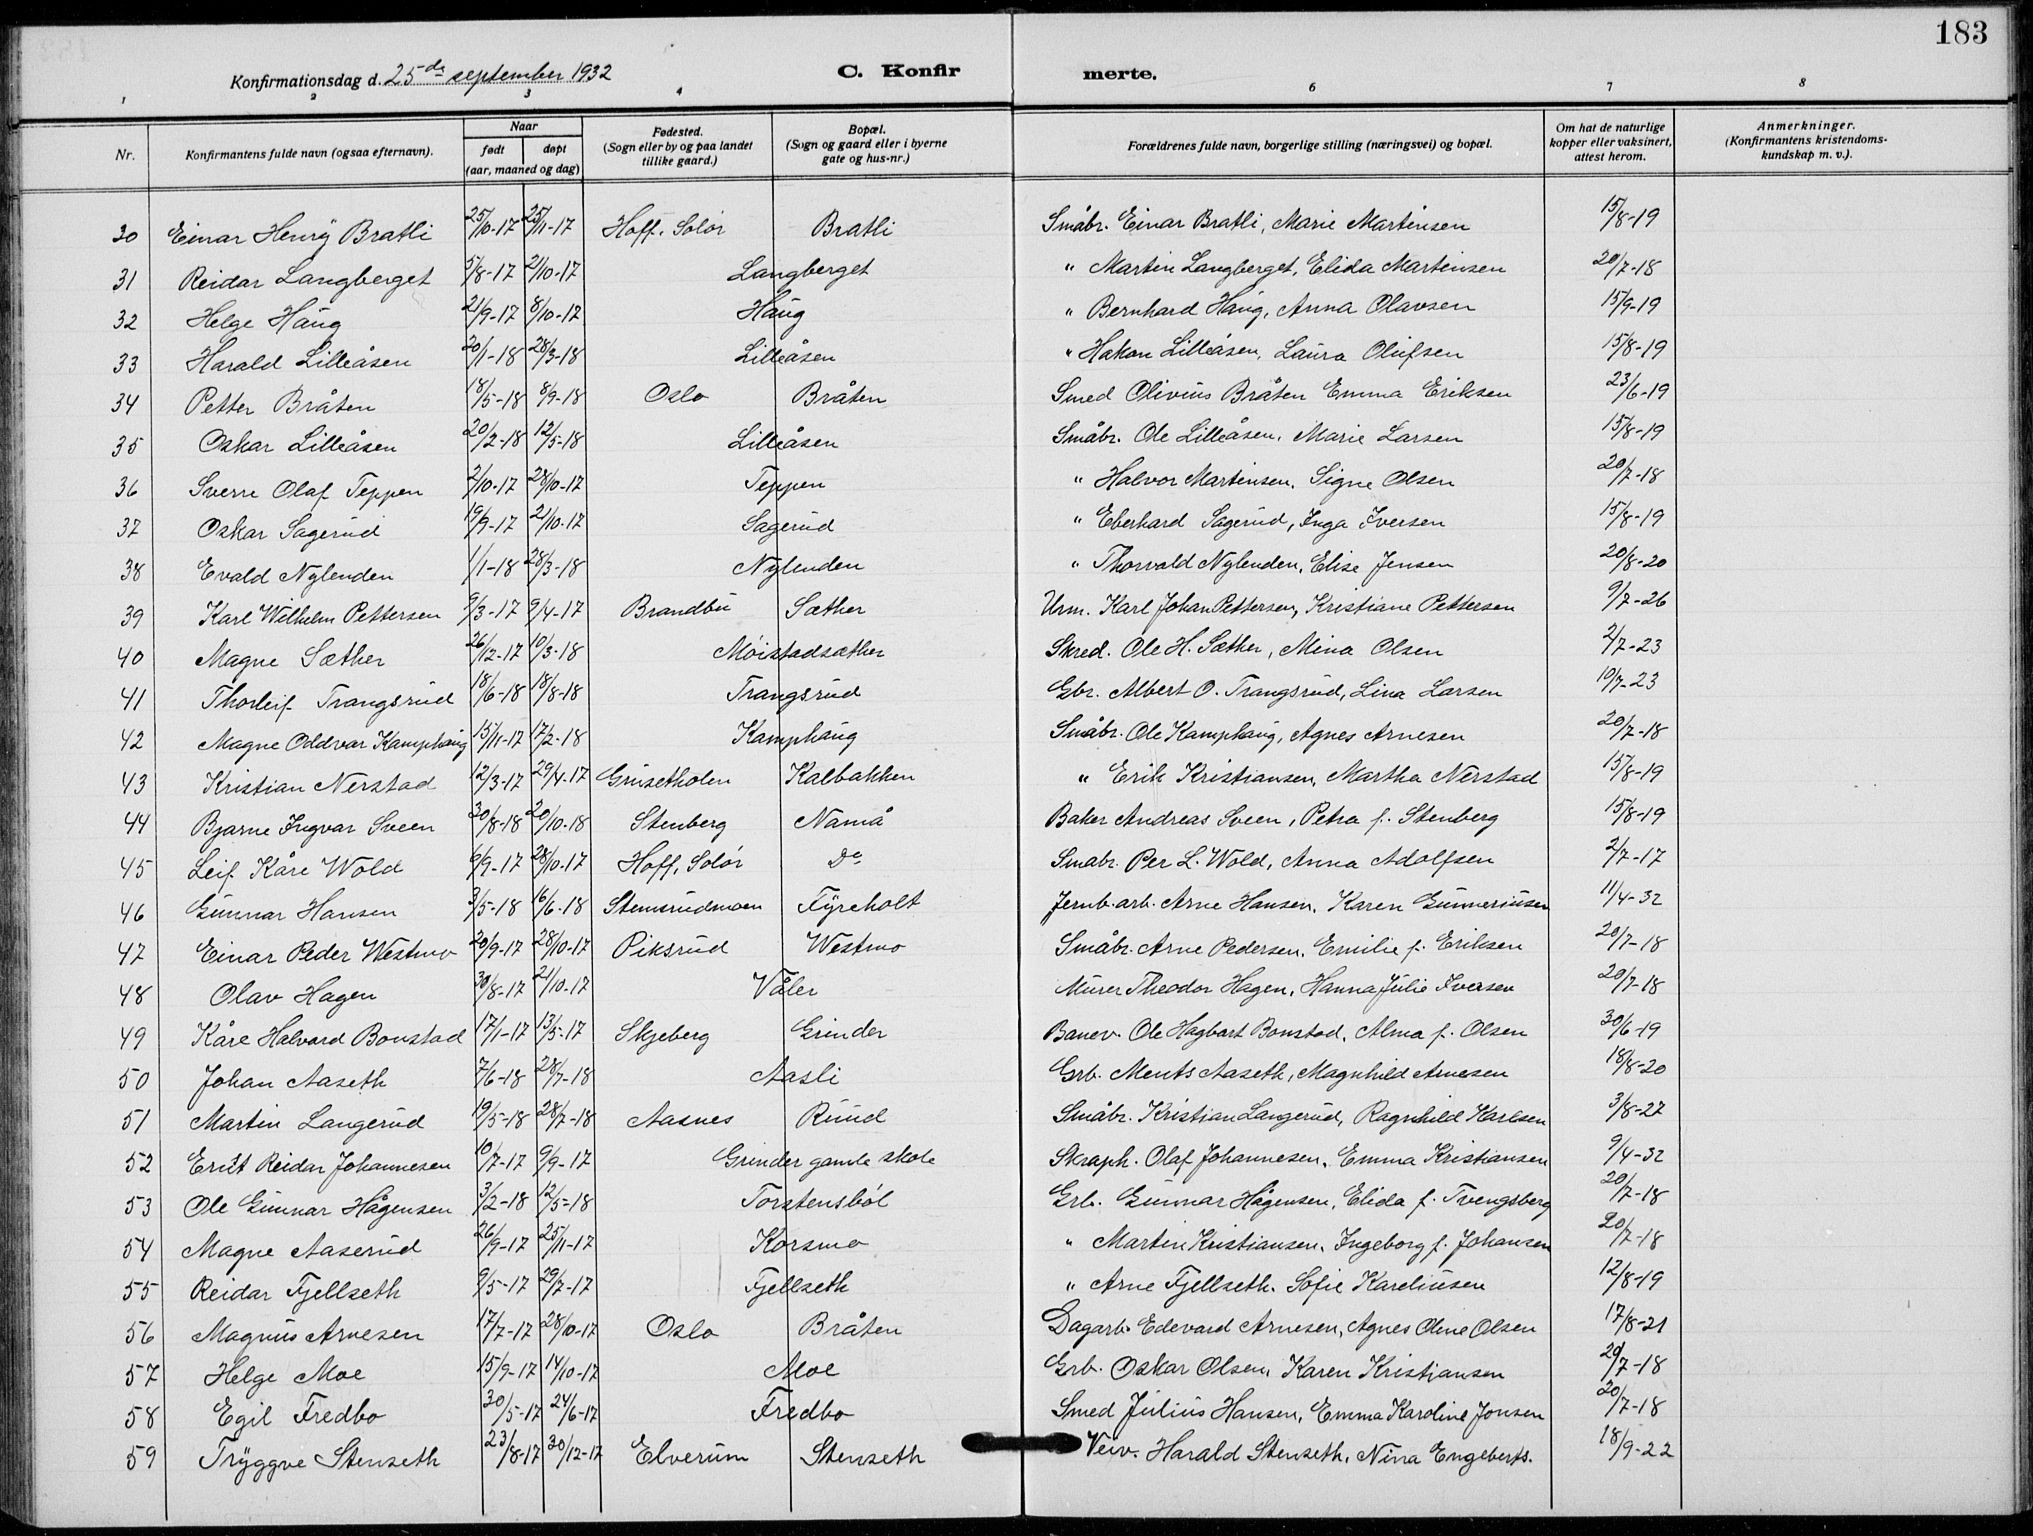 183
Konfirmationsdag d. 25de september 1932 C. Konfir merte.
1 2 3 4 6 7 8
Nr. Konfirmantens fulde navn (ogsaa efternavn). Naar født døpt (aar, maaned og dag) Fødested. (Sogn eller by og paa landet tillike gaard.) Bopæl. (Sogn og gaard eller i byerne gate og hus-nr.) Forældrenes fulde navn, borgerlige stilling (næringsvei) og bopæl. Om hat de naturlige kopper eller vaksinert, attest herom. Anmerkninger. (Konfirmantens kristendomskundskap m. v.).
30 Einar Henry Bratli 25/10-17 25/11-17 Hoff, Solør Bratli Småbr. Einar Bratli, Marie Martinsen 15/8-19
31 Reidar Langberget 5/8-17 21/10-17 Langberget " Martin Langberget, Elida Martinsen 20/7-18
32 Helge Haug 21/9-17 8/10-17 Haug " Bernhard Haug, Anna Olavsen 15/9-19
33 Harald Lilleåsen 20/1-18 28/3-18 Lilleåsen " Hakon Lilleåsen, Laura Olufsen 15/8-19
34 Petter Bråten 18/5-18 8/9-18 Oslo Bråten Smed Olivius Bråten Emma Eriksen 23/6-19
35 Oskar Lilleåsen 20/2-18 12/5-18 Lilleåsen Småbr. Ole Lilleåsen, Marie Larsen 15/8-19
36 Sverre Olaf Teppen 2/10-17 28/10-17 Teppen " Halvor Martinsen, Signe Olsen 20/7-18
37 Oskar Sagerud 19/9-17 21/10-17 Sagerud " Eberhard Sagerud, Inga Iversen 15/8-19
38 Evald Nylenden 1/1-18 28/3-18 Nylenden " Thorvald Nylenden, Elise Jensen 20/8-20
39 Karl Wilhelm Pettersen 9/3-17 9/4-17 Brandbu Sæther Urm. Karl Johan Pettersen, Kristiane Pettersen 9/7-26
40 Magne Sæther 26/12-17 10/3-18 Møistadsæther Skred. Ole H. Sæther, Mina Olsen 2/7-23
41 Thorleif Trangsrud 18/6-18 18/8-18 Trangsrud Gbr. Albert O. Trangsrud, Lina Larsen 10/7-23
42 Magne Oddvar Kamphaug 15/11-17 17/2-18 Kamphaug Småbr. Ole Kamphaug, Agnes Arnesen 20/7-18
43 Kristian Nerstad 12/3-17 29/4-17 Grusetholen Kalbakken " Erik Kristiansen, Martha Nerstad 15/8-19
44 Bjarne Ingvar Sveen 30/8-18 20/10-18 Stenberg Namå Baker Andreas Sveen, Petra f. Stenberg 15/8-19
45 Leif Kåre Wold 6/9-17 28/10-17 Hoff, Solør Do Smabr. Per L. Wold, Anna Adolfsen 2/7-17
46 Gunnar Hansen 3/5-18 16/6-18 Stemsrudmoen Fyreholt Jernb. arb. Arne Hansen, Karen Gunneriusen 11/4-32
47 Einar Peder Westmo 20/9-17 28/10-17 Piksrud Westmo Småbr. Arne Pedersen, Emilie f. Eriksen 20/7-18
48 Olav Hagen 30/8-17 21/10-17 Våler Murer Theodor Hagen, Hanna Julie Iversen 20/7-18
49 Kåre Halvard Bonstad 17/1-17 13/5-17 Skjeberg Grinder Banev. Ole Hagbart Bonstad, Alma f. Olsen 30/6-19
50 Johan Aaseth 7/6-18 28/7-18 Aasli Grb. Ments Aaseth, Magnhild Arnesen 18/8-20
51 Martin Langerud 19/5-18 28/7-18 Aasnes Ruud Småbr. Kristian Langerud, Ragnhild Karlsen 3/8-27
52 Erik Reidar Johannesen 10/7-17 9/9-17 Grinder gamle skole Skraph. Olaf Johannesen, Emma Kristiansen 9/4-32
53 Ole Gunnar Hågensen 3/2-18 12/5-18 Torstensbøl Grb. Gunnar Hågensen, Elida f. Tvengsberg 20/7-18
54 Magne Aaserud 26/9-17 25/11-17 Korsmo " Martin Kristiansen, Ingeborg f. Johansen 20/7-18
55 Reidar Fjellseth 9/5-17 29/7-17 Fjellseth " Arne Fjellseth. Sofie Kareliusen 12/8-19
56 Magnus Arnesen 17/7-17 28/10-17 Oslo Bråten Dagarb. Edevard Arnesen, Agnes Oline Olsen 17/8-21
57 Helge Moe 15/9-17 14/10-17 Moe Grb. Oskar Olsen, Karen Kristiansen 20/7-18
58 Egil Fredbo 30/5-17 24/6-17 Fredbo Smed Julius Hansen, Emma Karoline Jonsen 20/7-18
59 Tryggve Stenseth 23/8-17 30/12-17 Elverum Stenseth Veiv. Harald Stenseth, Nina Engeberts. 18/9-22